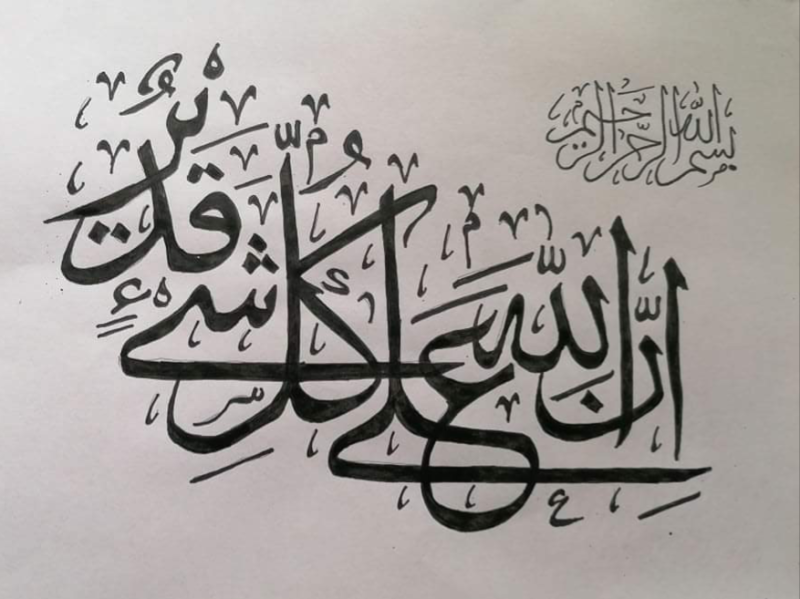 بسم الله الرحمن الرحيم
إِنَّ اللَّهَ عَلَى كُلِّ شَيْءٍ قَدِيرٌ